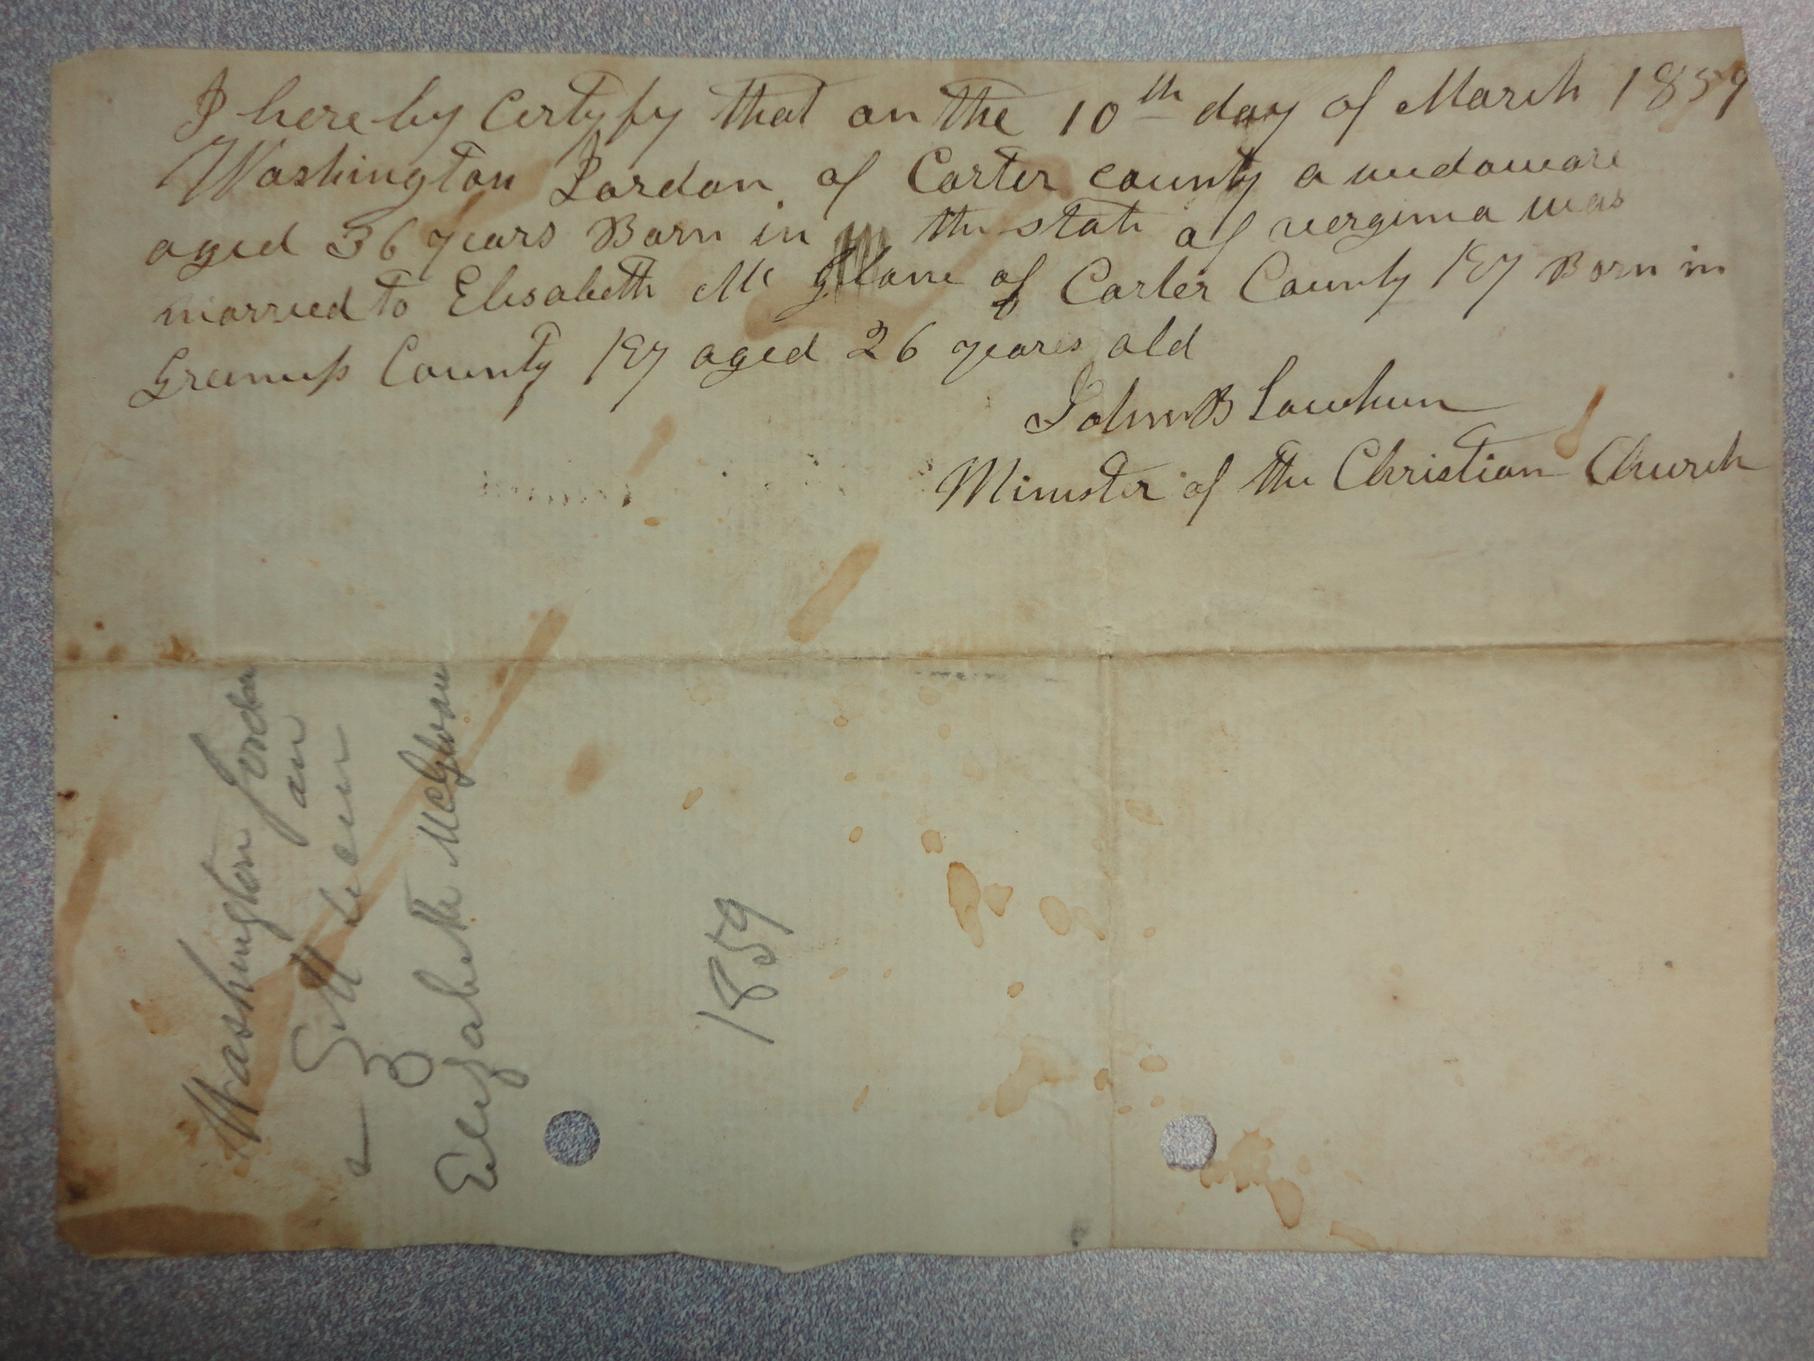 I here by certyfy that on the 10th day of March 1859
Washington Jordan of Carter county a widoware
aged 36 years Born in the state of verginia was
married to Elisabeth Mc Glone of Carter County Ky Born in
Greenup County Ky aged 26 years old
John B Lawhun
Minister of the Christian Church
Washington Jordan
an
to
Elizabeth McGlone
1859